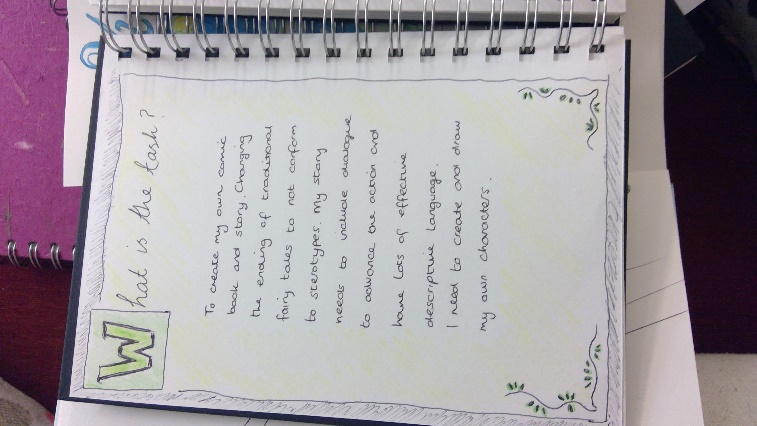 What is the task?
To create my own comic
book and story. Changing
the ending of traditional
fairy tales to not conform
to sterotypes. My story
needs to include dialogue
to advance the action and
have lots of effective
descriptive language.
I need to create and draw
my own characters.